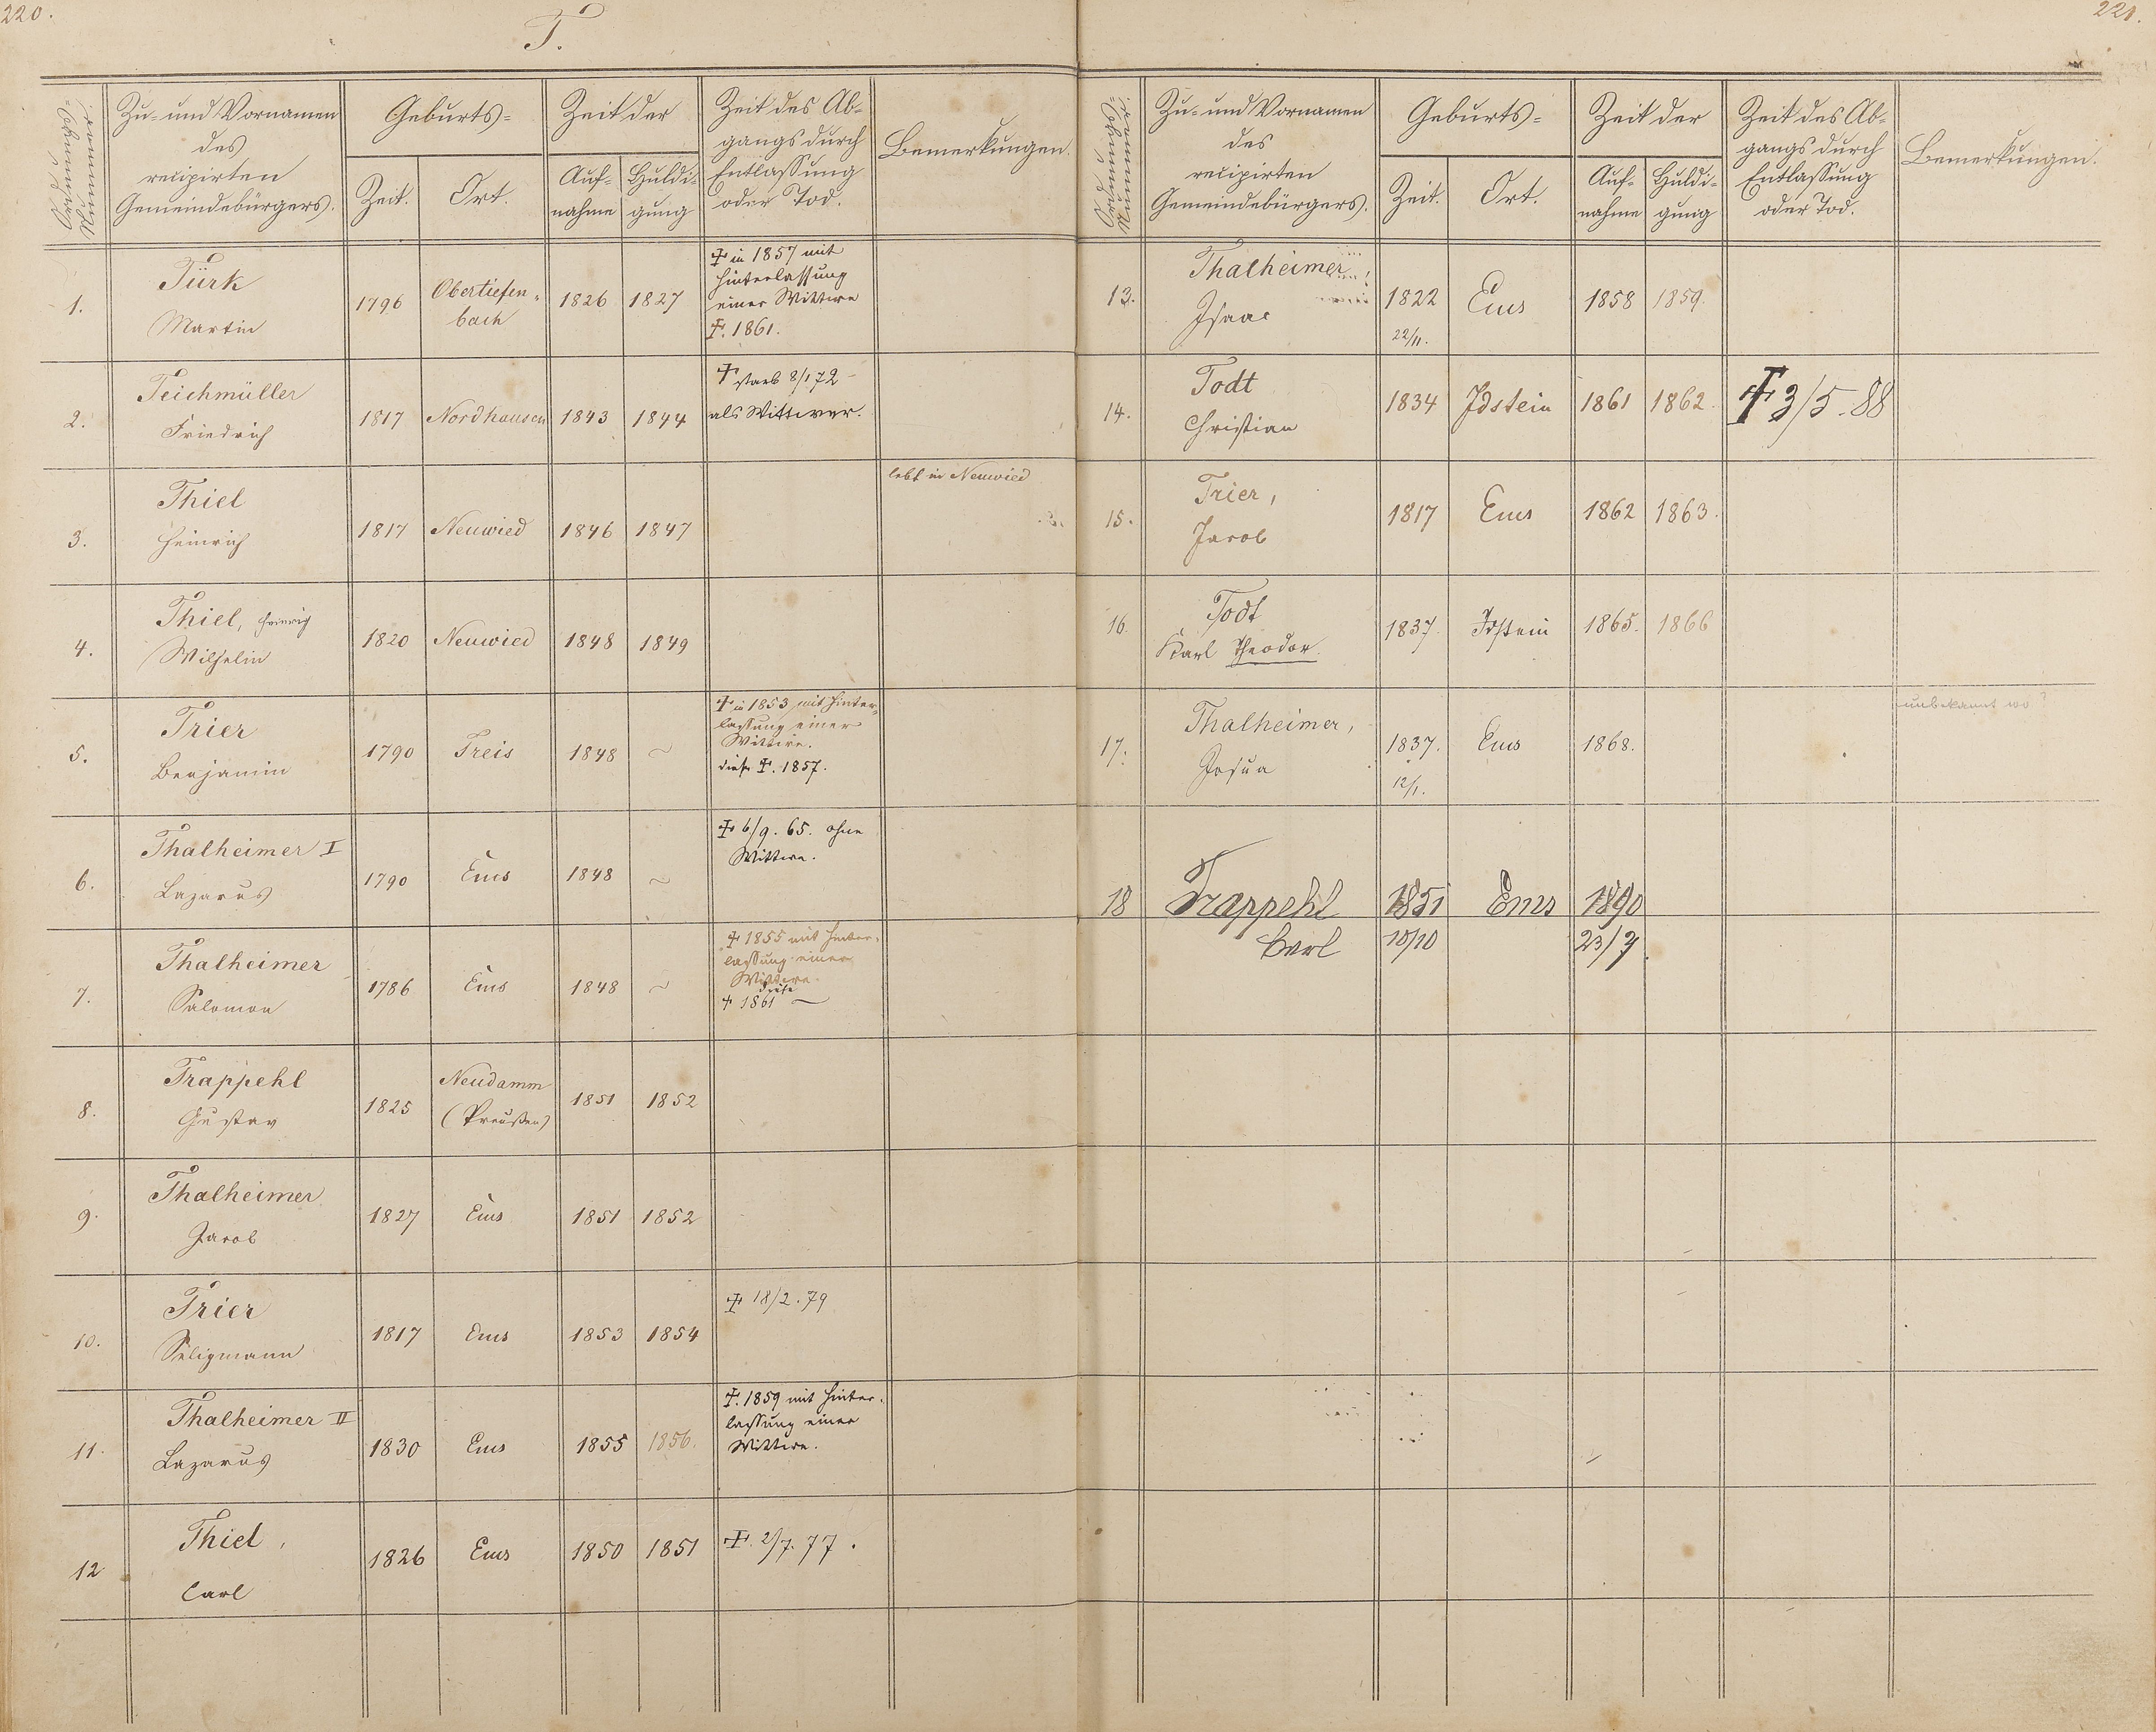 220.
T.
Ordnungs-
Nummer.
Zu- und Vornamen
des
recipirten
Gemeindebürgers.
Geburts-
Zeit.
Ort.
Zeit der
Auf-
nahme
Huldi-
gung
Zeit des Ab-
gangs durch
Entlassung
oder Tod.
Bemerkungen.
1.
Türk
Martin
1796
Obertiefen-
bach
1826
1827
† in 1857 mit
Hinterlassung
einer Wittwe
†. 1861.
2.
Teichmüller
Friedrich
1817
Nordhausen
1843
1844
† starb 8/1 72 -
als Wittwer.
3.
Thiel
Heinrich
1817
Neuwied
1846
1847
lebt in Neuwied
4.
Thiel, Heinrich
Wilhelm
1820
Neuwied
1848
1849
5.
Trier
Benjamin
1790
Treis
1848
~
† in 1853 mit Hinter-
lassung einer
Wittwe.
diese †. 1857.
6.
Thalheimer I
Lazarus
1790
Ems
1848
~
† 6/9. 65. ohne
Wittwe.
7.
Thalheimer
Salomon
1786
Ems
1848
~
† 1855 mit Hinter-
lassung einer
Wittwe.
diese
† 1861 —
8.
Trappehl
Gustav
1825
Neudamm
(Preußen)
1851
1852
9.
Thalheimer
Jacob
1827
Ems
1851
1852
10.
Trier
Seligmann
1817
Ems
1853
1854
† 18/2. 79
11.
Thalheimer II
Lazarus
1830
Ems
1855
1856.
†. 1859 mit Hinter-
lassung einer
Wittwe.
12
Thiel,
Carl
1826
Ems
1850
1851
†. 2/7. 77.
221.
Ordnungs-
Nummer.
Zu- und Vornamen
des
recipirten
Gemeindebürgers.
Geburts-
Zeit.
Ort.
Zeit der
Auf-
nahme
Huldi-
gung
Zeit des Ab-
gangs durch
Entlassung
oder Tod.
Bemerkungen.
13.
Thalheimer
Isaac
1822
22/11.
Ems
1858
1859.
14.
Todt
Christian
1834
Idstein
1861
1862.
† 3/5. 88
15.
Trier,
Jacob
1817
Ems
1862
1863.
16.
Todt
Karl Theodor.
1837.
Idstein
1865.
1866
17.
Thalheimer,
Josua
1837.
12/1.
Ems
1868.
unbekannt wo?
18
Trappehl
Carl
1851
10/10
Ems
1890
23/7.